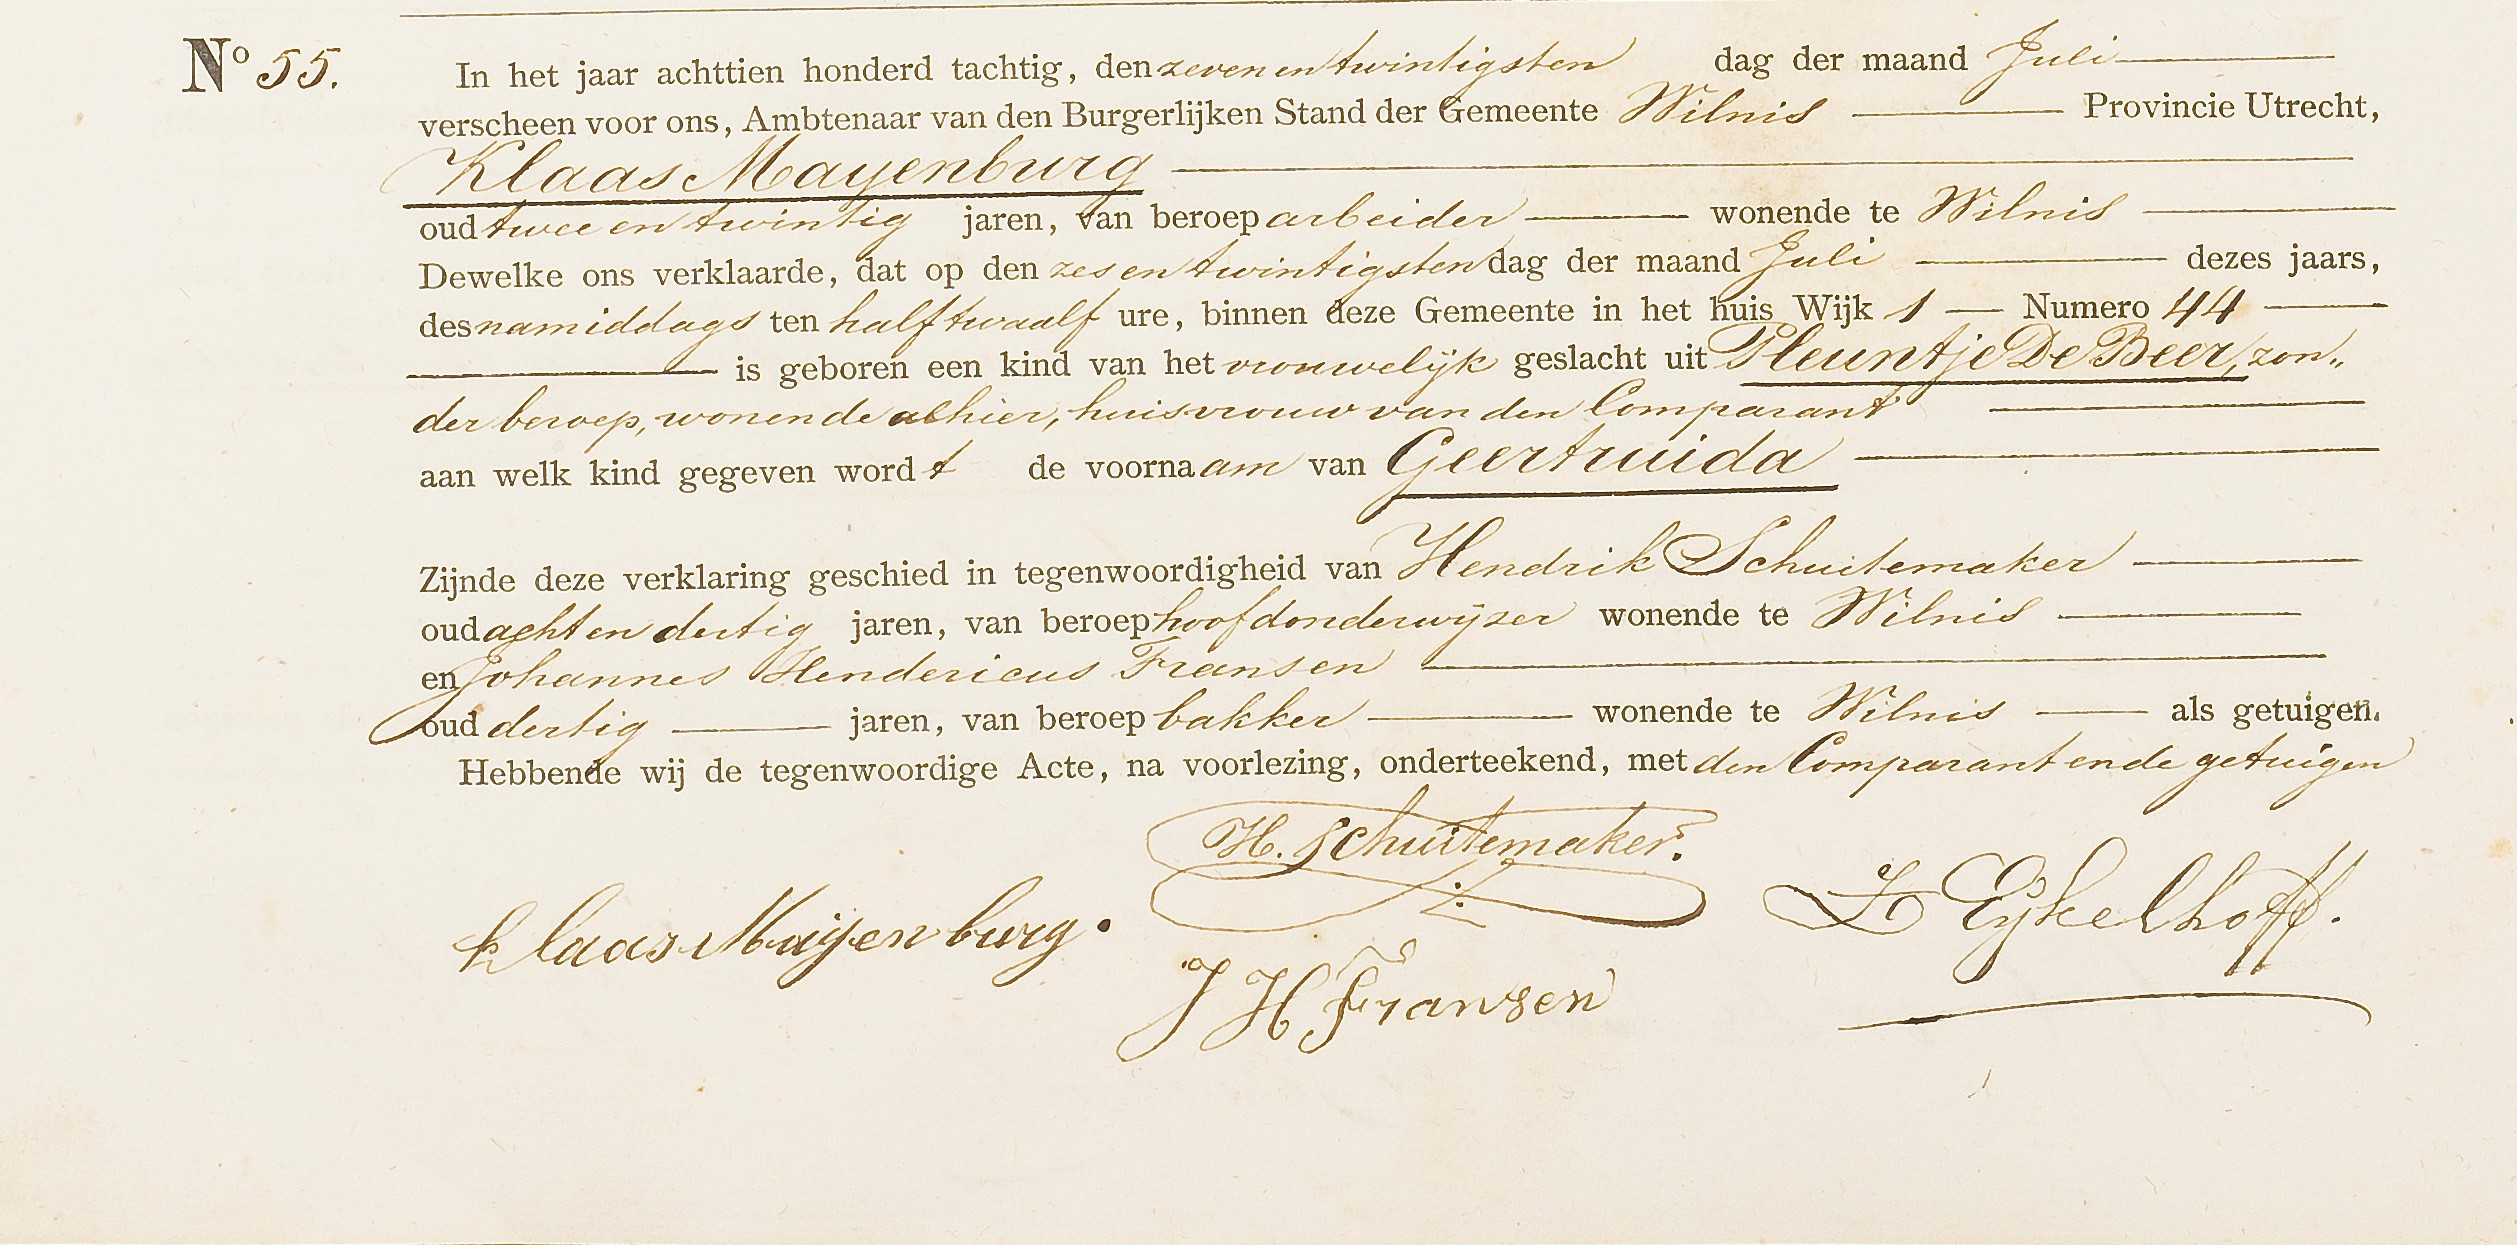 Nº 55. In het jaar achttien honderd tachtig, den zeven en twintigsten dag der maand Juli
verscheen voor ons, Ambtenaar van den Burgerlijken Stand der Gemeente Wilnis Provincie Utrecht,
Klaas Mayenburg
oud twee en twintig jaren, van beroep arbeider wonende te Wilnis
Dewelke ons verklaarde, dat op den zes en twintigsten dag der maand Juli dezes jaars,
des namiddags ten half twaalf ure, binnen deze Gemeente in het huis Wijk 1 Numero 44
is geboren een kind van het vrouwelijk geslacht uit Pleuntje De Beer, zon„
der beroep, wonende alhier, huisvrouw van den Comparant
aan welk kind gegeven wordt de voornaam van Geertruida
Zijnde deze verklaring geschied in tegenwoordigheid van Hendrik Schuitemaker
oud acht en dertig jaren, van beroep hoofdonderwijzer wonende te Wilnis
en Johannes Hendericus Fransen
oud dertig jaren, van beroep bakker wonende te Wilnis als getuigen.
Hebbende wij de tegenwoordige Acte, na voorlezing, onderteekend, met den Comparant en de getuigen
H. Schuitemaker.
Klaas Maijenburg.
Eykelhoff.
J H Fransen